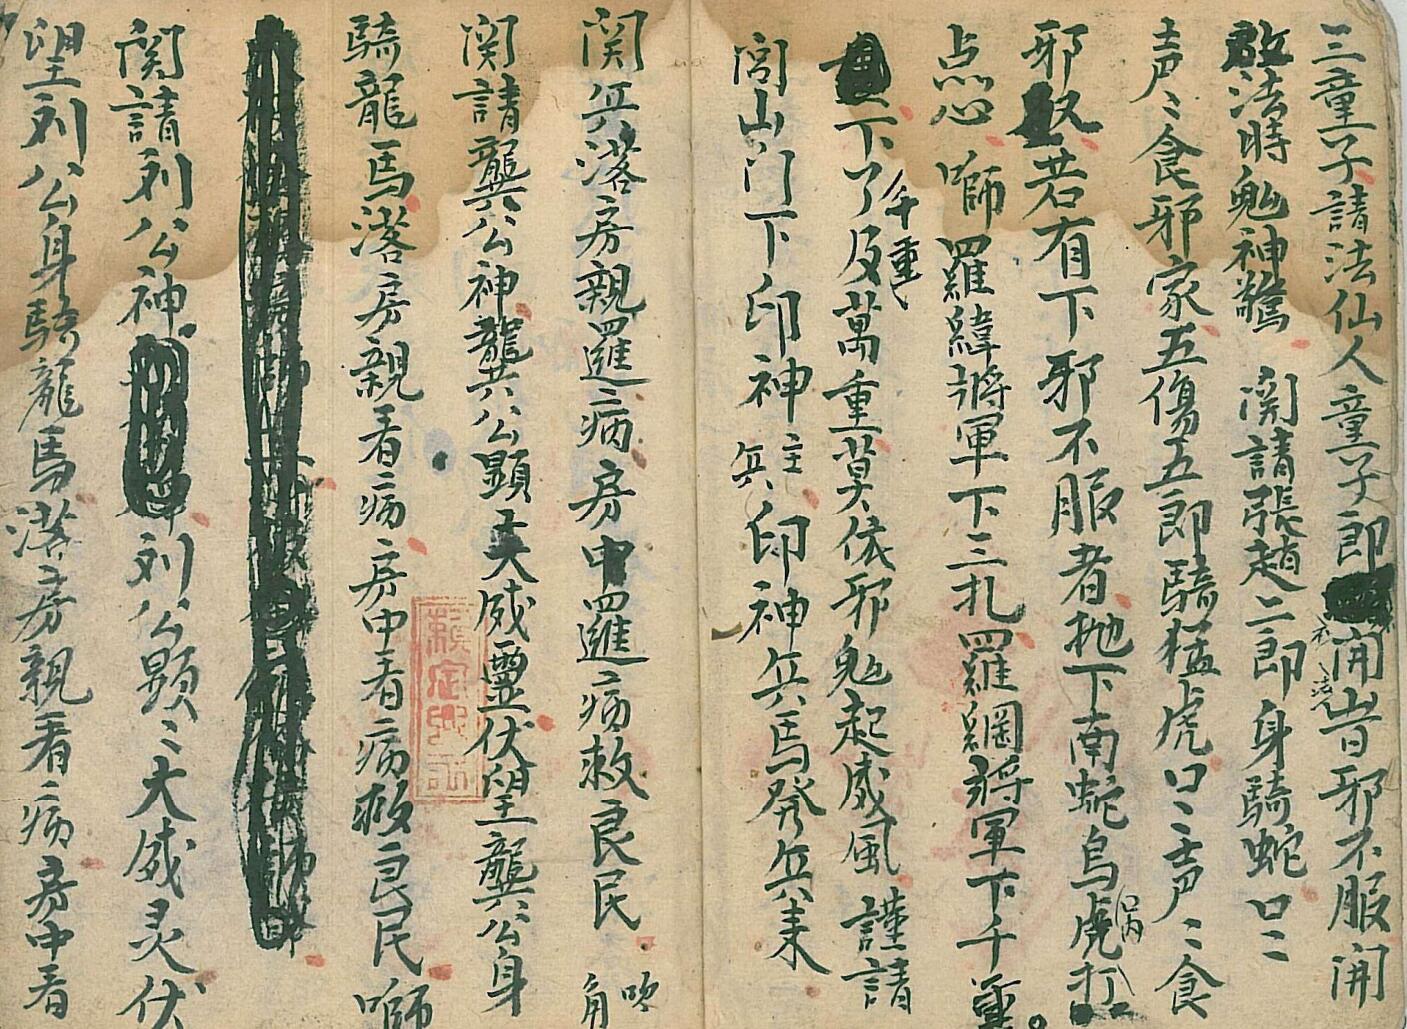 三童子請法仙人童子郎開山皆邪不服開
啟法時鬼神驚関請張趙二郎身騎蛇口〻
声〻食邪家五傷五郎騎猛虎口〻声〻食
邪若有下邪不服者拋下南蛇鳥虎打
点心唧羅緯將軍下三扎羅網將軍下千
下了千重及萬重莫依邪鬼起威風謹請
閭山门下印神主兵印神兵馬発兵来
関兵落房親邏〻病房中邏病救良民 吹角
関請龔公神龔公顕大威靈伏望龔公身
騎龍馬落房親看病房中看病救良民唧
関請列公神列公顕〻大威灵伏
望列公身騎龍馬落房親看病房中看